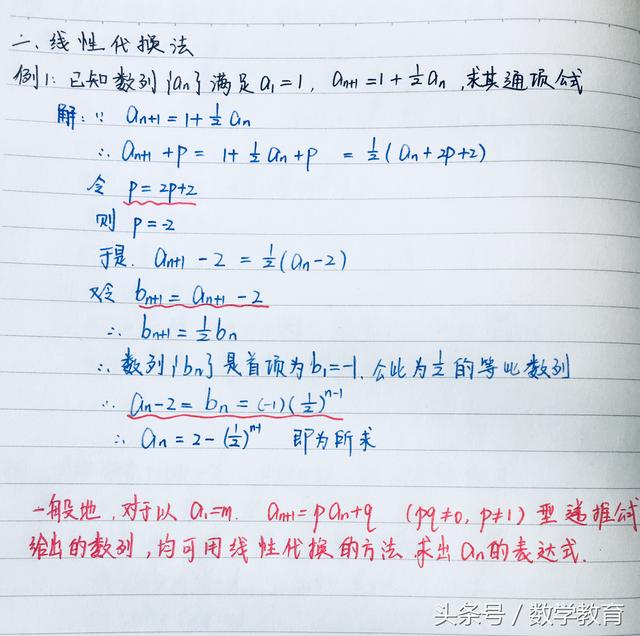 二、线性代换法
例1: 已知数列{an}满足a₁=1, aₙ₊₁=1+½aₙ,求其通项公式
解:∵ aₙ₊₁=1+½aₙ
∴ aₙ₊₁+p= 1+½aₙ+p =½(aₙ+2p+2)
令 p=2p+2
则 p=-2
于是. aₙ₊₁-2=½(aₙ-2)
又令 bₙ₊₁=aₙ₊₁-2
∴ bₙ₊₁=½bₙ
∴ 数列{bₙ}是首项为b₁=-1,公比为½的等比数列
∴ aₙ-2=bₙ=(-1)(½)ⁿ⁻¹
∴ aₙ=2-(½)ⁿ⁻¹ 即为所求
一般地,对于以a₁=m. aₙ₊₁=paₙ+q (pq≠0, p≠1)型递推公式
给出的数列,均可用线性代换的方法求出aₙ的表达式.
头条号 / 数学教育